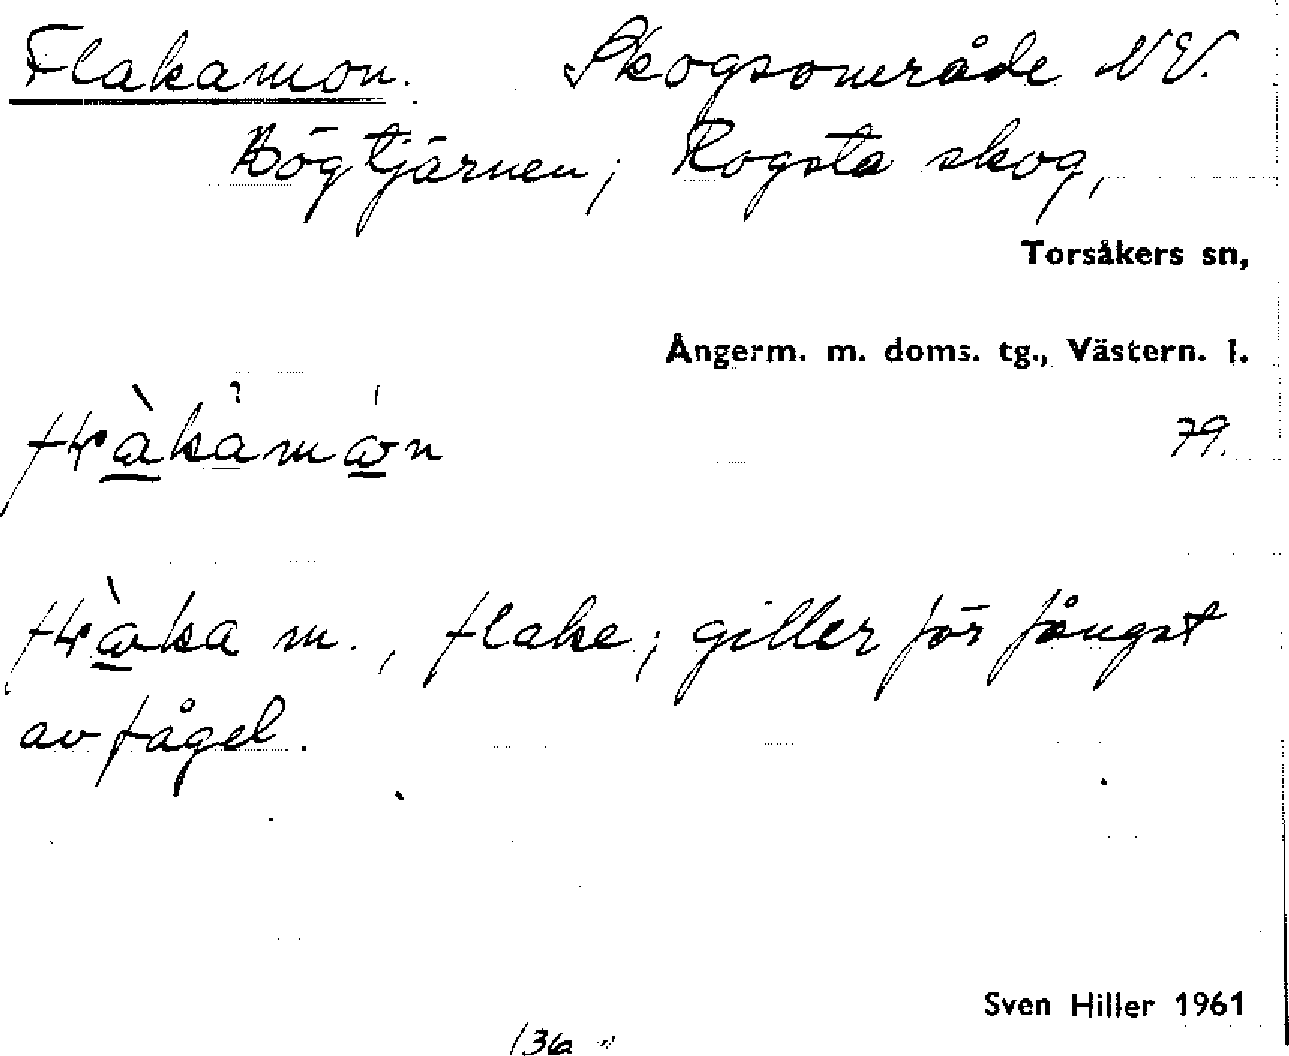 Flakamon. Skogsområde NV.
Högtjärnen; Rogsta skog,
Torsåkers sn,
Ångerm. m. doms. tg., Västern. l.
79.
m., flake; giller för fångst
av fågel.
Sven Hiller 1961
136